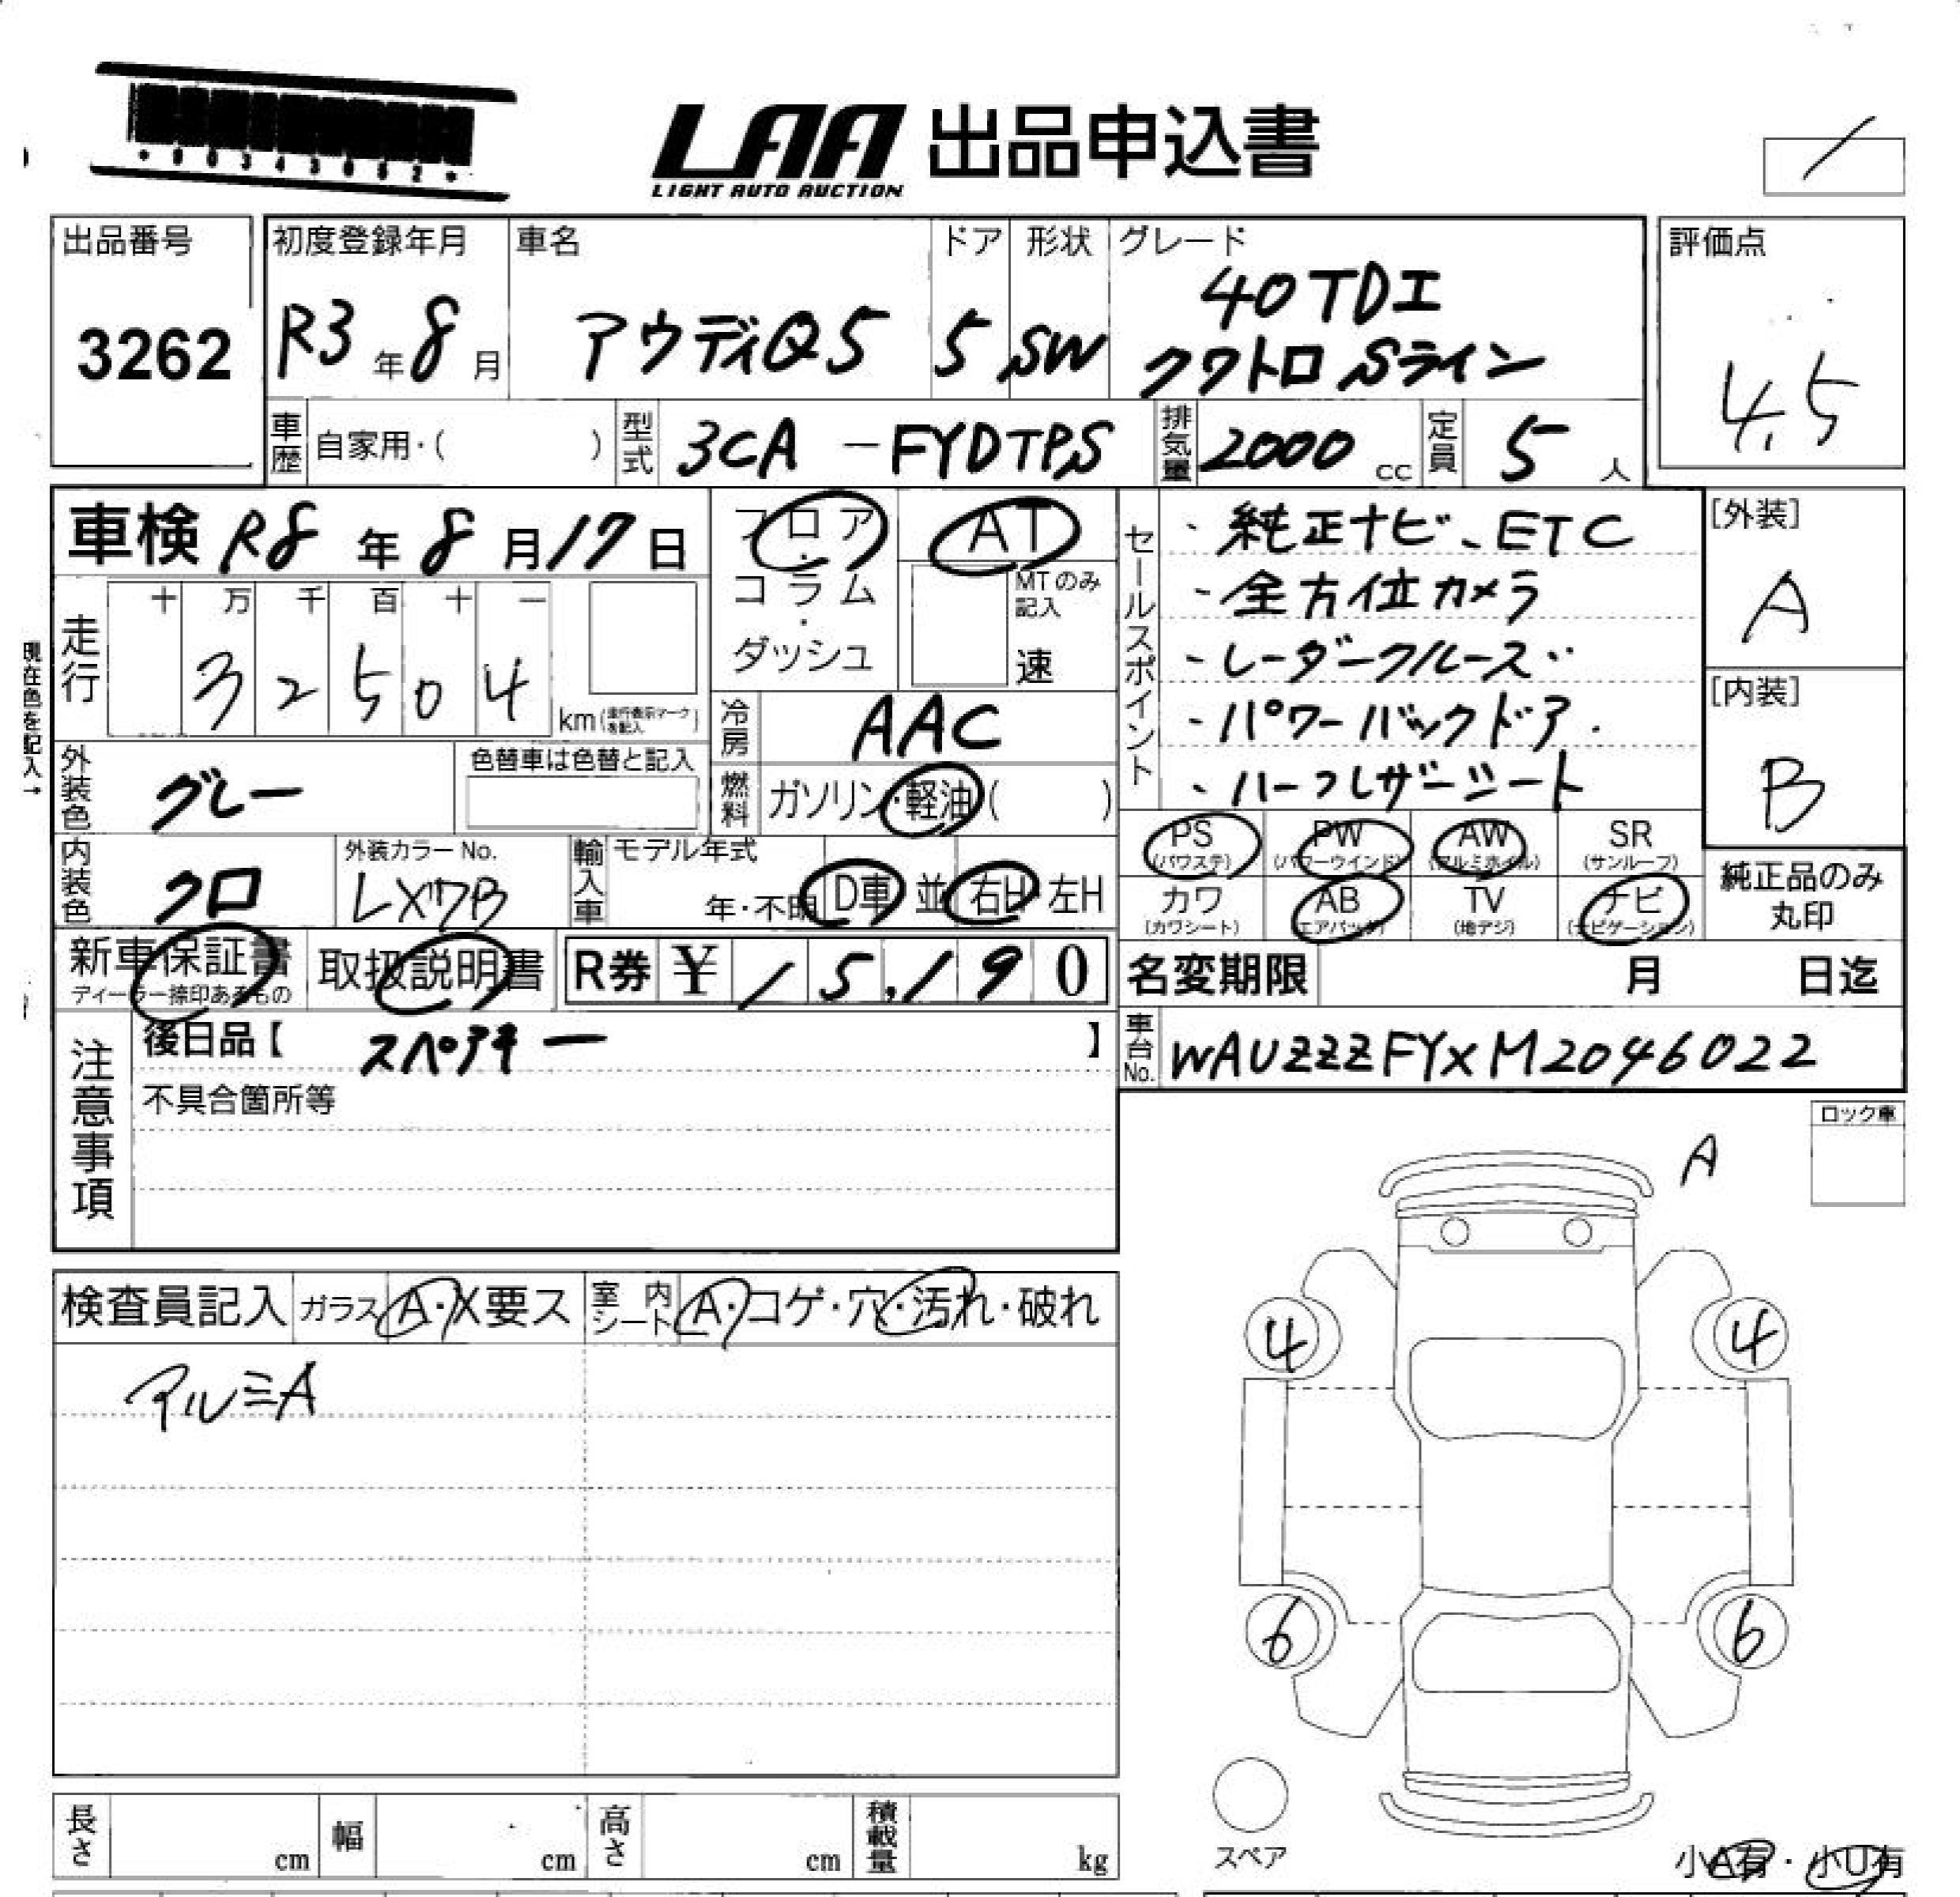 *00343052*
LAA 出品申込書
LIGHT AUTO AUCTION
出品番号
3262
初度登録年月
R3年8月
車名
アウディQ5
ドア
5
形状
SW
グレード
40TDI
クワトロ Sライン
評価点
4.5
車歴 自家用・( )
型式 3CA-FYDTPS
排気量 2000 cc
定員 5 人
車検 R8年8月17日
フロア・コラム・ダッシュ
AT
MTのみ記入
速
セールスポイント
・純正ナビ、ETC
・全方位カメラ
・レーダークルーズ
・パワーバックドア
・ハーフレザーシート
[外装]
A
[内装]
B
現在色を記入→
走行
十 万 千 百 十 一
3 2 5 0 4
km(走行表示マークを記入)
冷房 AAC
外装色 グレー
色替車は色替と記入
燃料 ガソリン・軽油( )
内装色 クロ
外装カラーNo.
LX7B
輸入車
モデル年式
年・不明
D車 並
右H・左H
PS(パワステ)
PW(パワーウインド)
AW(アルミホイル)
SR(サンルーフ)
カワ(カワシート)
AB(エアバッグ)
TV(地デジ)
ナビ(ナビゲーション)
純正品のみ丸印
新車保証書
ディーラー捺印あるもの
取扱説明書
R券 ¥15,190
名変期限 月 日迄
注意事項
後日品【 スペアキー 】
不具合箇所等
車台No. WAUZZZFYXM2046022
ロック車
A
検査員記入
ガラス A・X要ス
室内シート A・コゲ・穴・汚れ・破れ
アルミA
4 4
6 6
スペア
小A有・小U有
長さ cm
幅 cm
高さ cm
積載量 kg